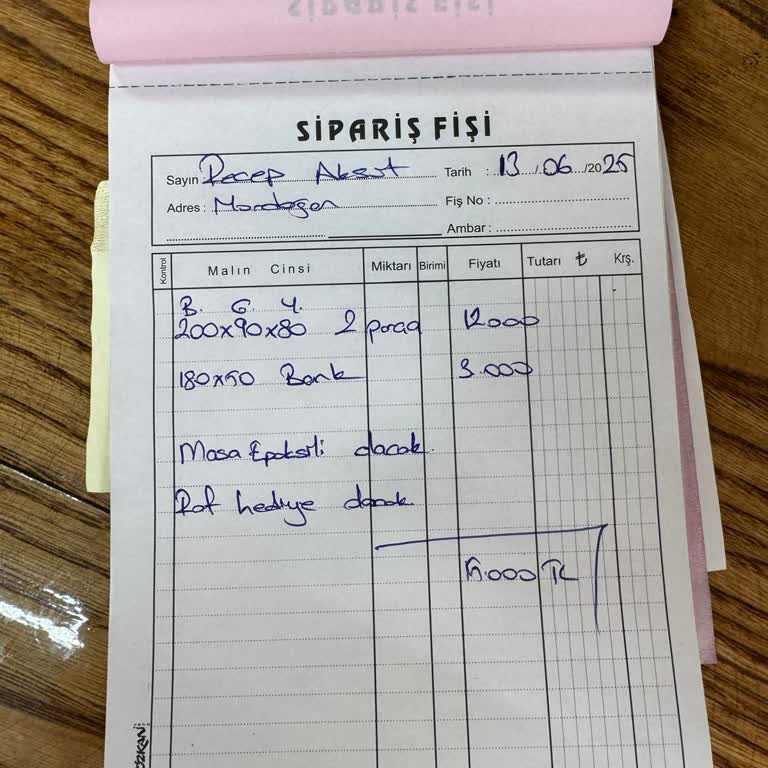 SİPARİŞ FİŞİ
Sayın Recep Aksut Tarih : 13/06/2025
Adres : Mordogan Fiş No :
Ambar :
Kontrol Malın Cinsi Miktarı Birimi Fiyatı Tutarı ₺ Krş.
B. G. Y.
200x90x80 2 parça 12000
180x50 Bank 3.000
Masa Epoksili olacak.
Raf hediye olacak
15.000 TL
ÖZKAN